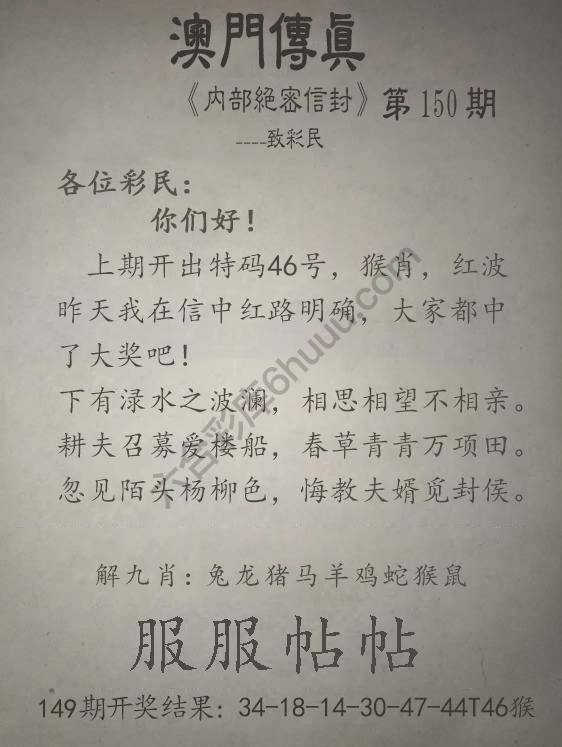 澳門傳眞
《内部絕密信封》第150期
----致彩民
各位彩民：
你们好！
上期开出特码46号，猴肖，红波
昨天我在信中红路明确，大家都中
了大奖吧！
下有渌水之波澜，相思相望不相亲。
耕夫召募爱楼船，春草青青万项田。
忽见陌头杨柳色，悔教夫婿觅封侯。
解九肖：兔龙猪马羊鸡蛇猴鼠
服服帖帖
149期开奖结果：34-18-14-30-47-44T46猴
六合彩库6huuu.com